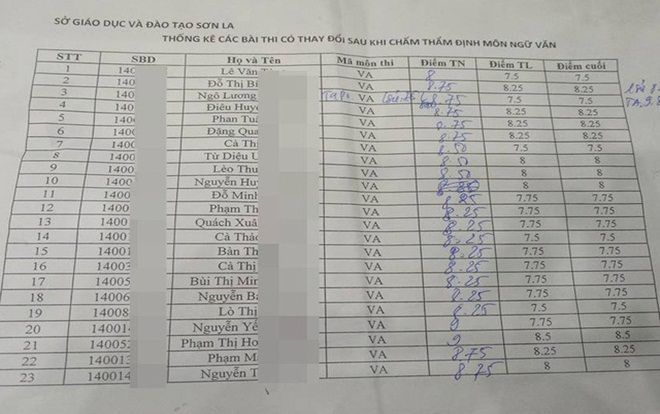 SỞ GIÁO DỤC VÀ ĐÀO TẠO SƠN LA
THỐNG KÊ CÁC BÀI THI CÓ THAY ĐỔI SAU KHI CHẤM THẨM ĐỊNH MÔN NGỮ VĂN
STT SBD Họ và Tên Mã môn thi Điểm TN Điểm TL Điểm cuối
1 1400 Lê Văn VA 8 7.5 7.5
2 1400 Đỗ Thị Bí VA 8.75 8.25 8.25
3 1400 Ngô Lương VA 8.25 8.25
4 1400 Điêu Huy VA 8.75 7.5 7.5
5 1400 Phan Tu VA 8.75 8.25 8.25
6 1400 Đặng Qua VA 8.75 8.25 8.25
7 1400 Cà Th VA 8.50 7.5 7.5
8 1400 Từ Diệu VA 8.50 8 8
9 1400 Lèo Thu VA 8.50 8 8
10 1400 Nguyễn Huy VA 8 8
11 1400 Đỗ Minh VA 8.25 7.75 7.75
12 1400 Phạm Th VA 8.25 7.75 7.75
13 1400 Quách Xuâ VA 8.25 7.75 7.75
14 1400 Cà Thảo VA 8.25 7.5 7.5
15 1400 Bàn Th VA 8.25 7.75 7.75
16 14003 Cà Thị VA 8.25 7.75 7.75
17 14005 Bùi Thị Min VA 8.25 7.75 7.75
18 14006 Nguyễn Bá VA 8.25 7.75 7.75
19 14008 Lò Thị VA 8.25 7.5 7.5
20 140014 Nguyễn Yế VA 9 7.75 7.75
21 140052 Phạm Thị Ho VA 9 8.5 8.5
22 140013 Phạm M VA 8.75 8.25 8.25
23 14001 Nguyễn T VA 8.75 8 8